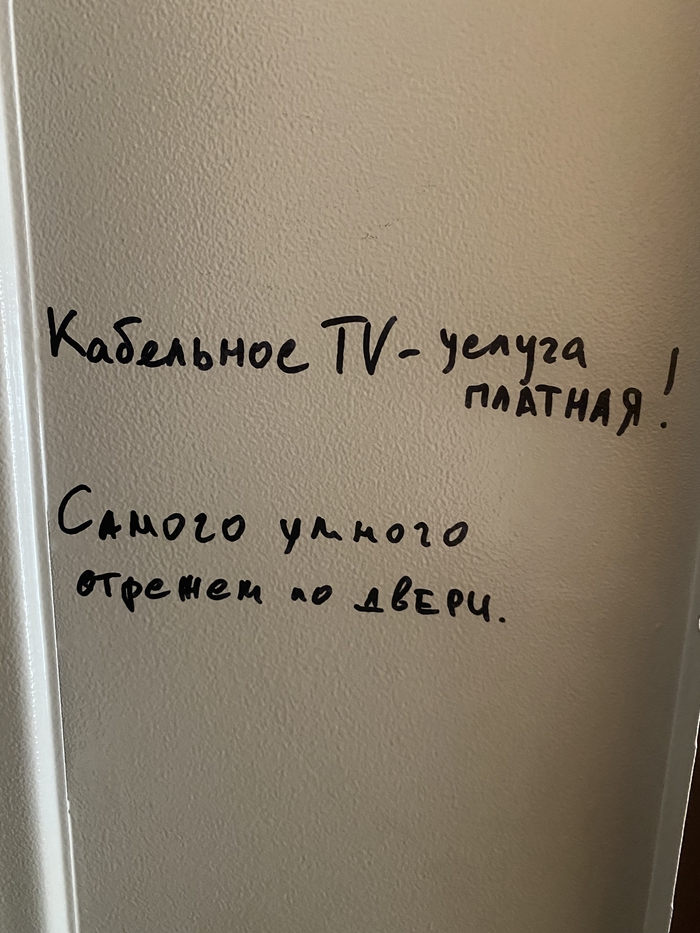 Кабельное TV - услуга
ПЛАТНАЯ!
Самого умного
отрежем по двЕРи.